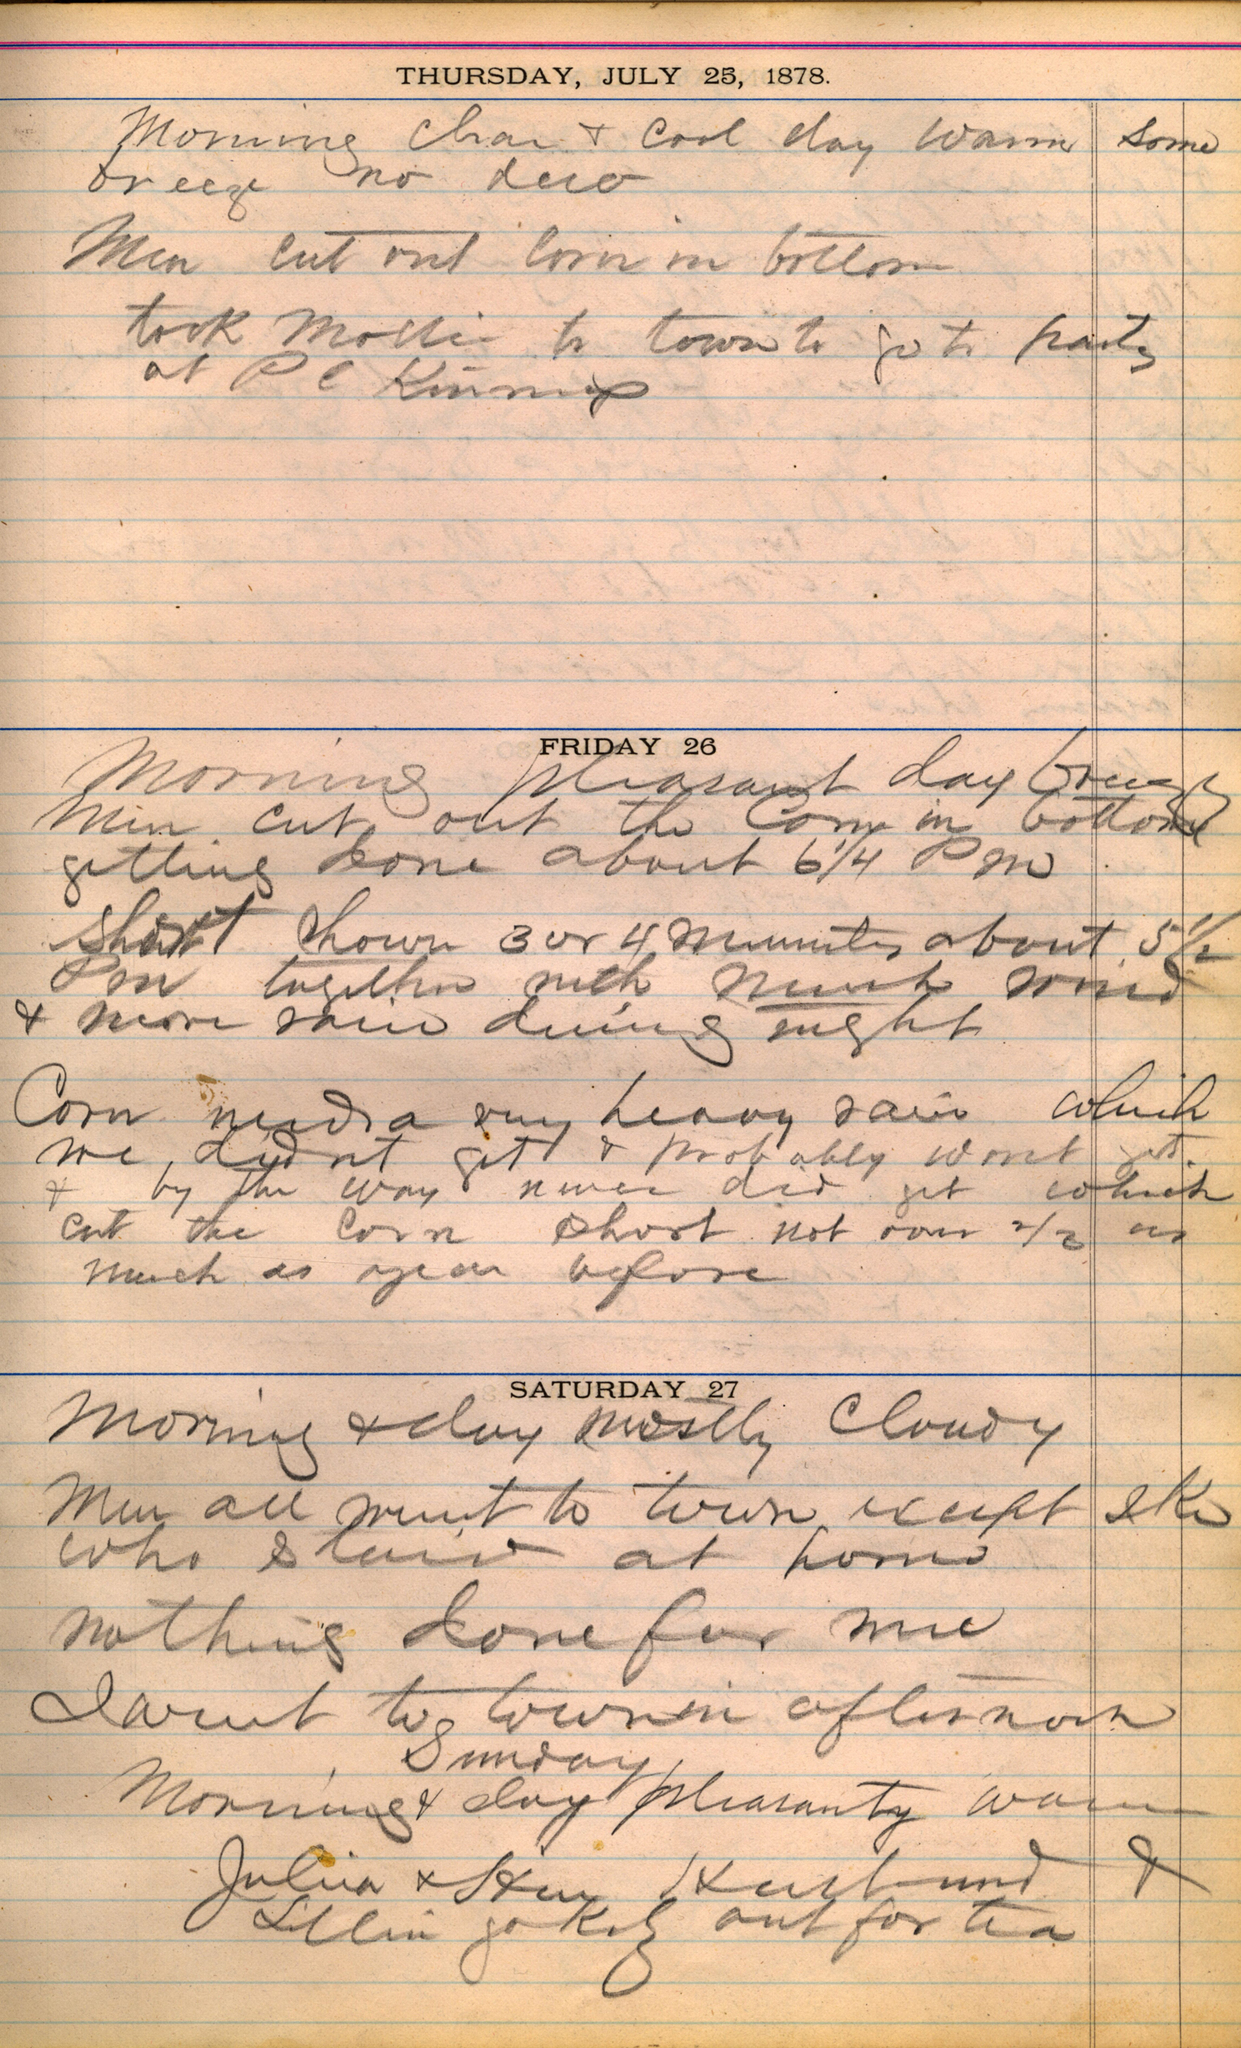 THURSDAY, JULY 25, 1878.
Morning clear & cool day warm some
breeze no dew
Men cut out corn in bottom
took Mollie to town to go to party
at P C
FRIDAY 26
Morning pleasant day breezy
Men cut out the Corn in bottom
getting done about 6 1/4 P m
short shower 3 or 4 minutes about 5 1/2
Pm together with much wind
& more rain during night
Corn needs a very heavy rain which
we didnt get & probably wont get
& by the way never did get which
cut the corn short not over 1/2 as
much as year before
SATURDAY 27
Morning & day mostly Cloudy
Men all went to town except Ike
who staid at home
nothing done for me
I went to town in afternoon
Sunday
Morning & day pleasanty warm
Julia & Her Husband &
Lillie out for tea